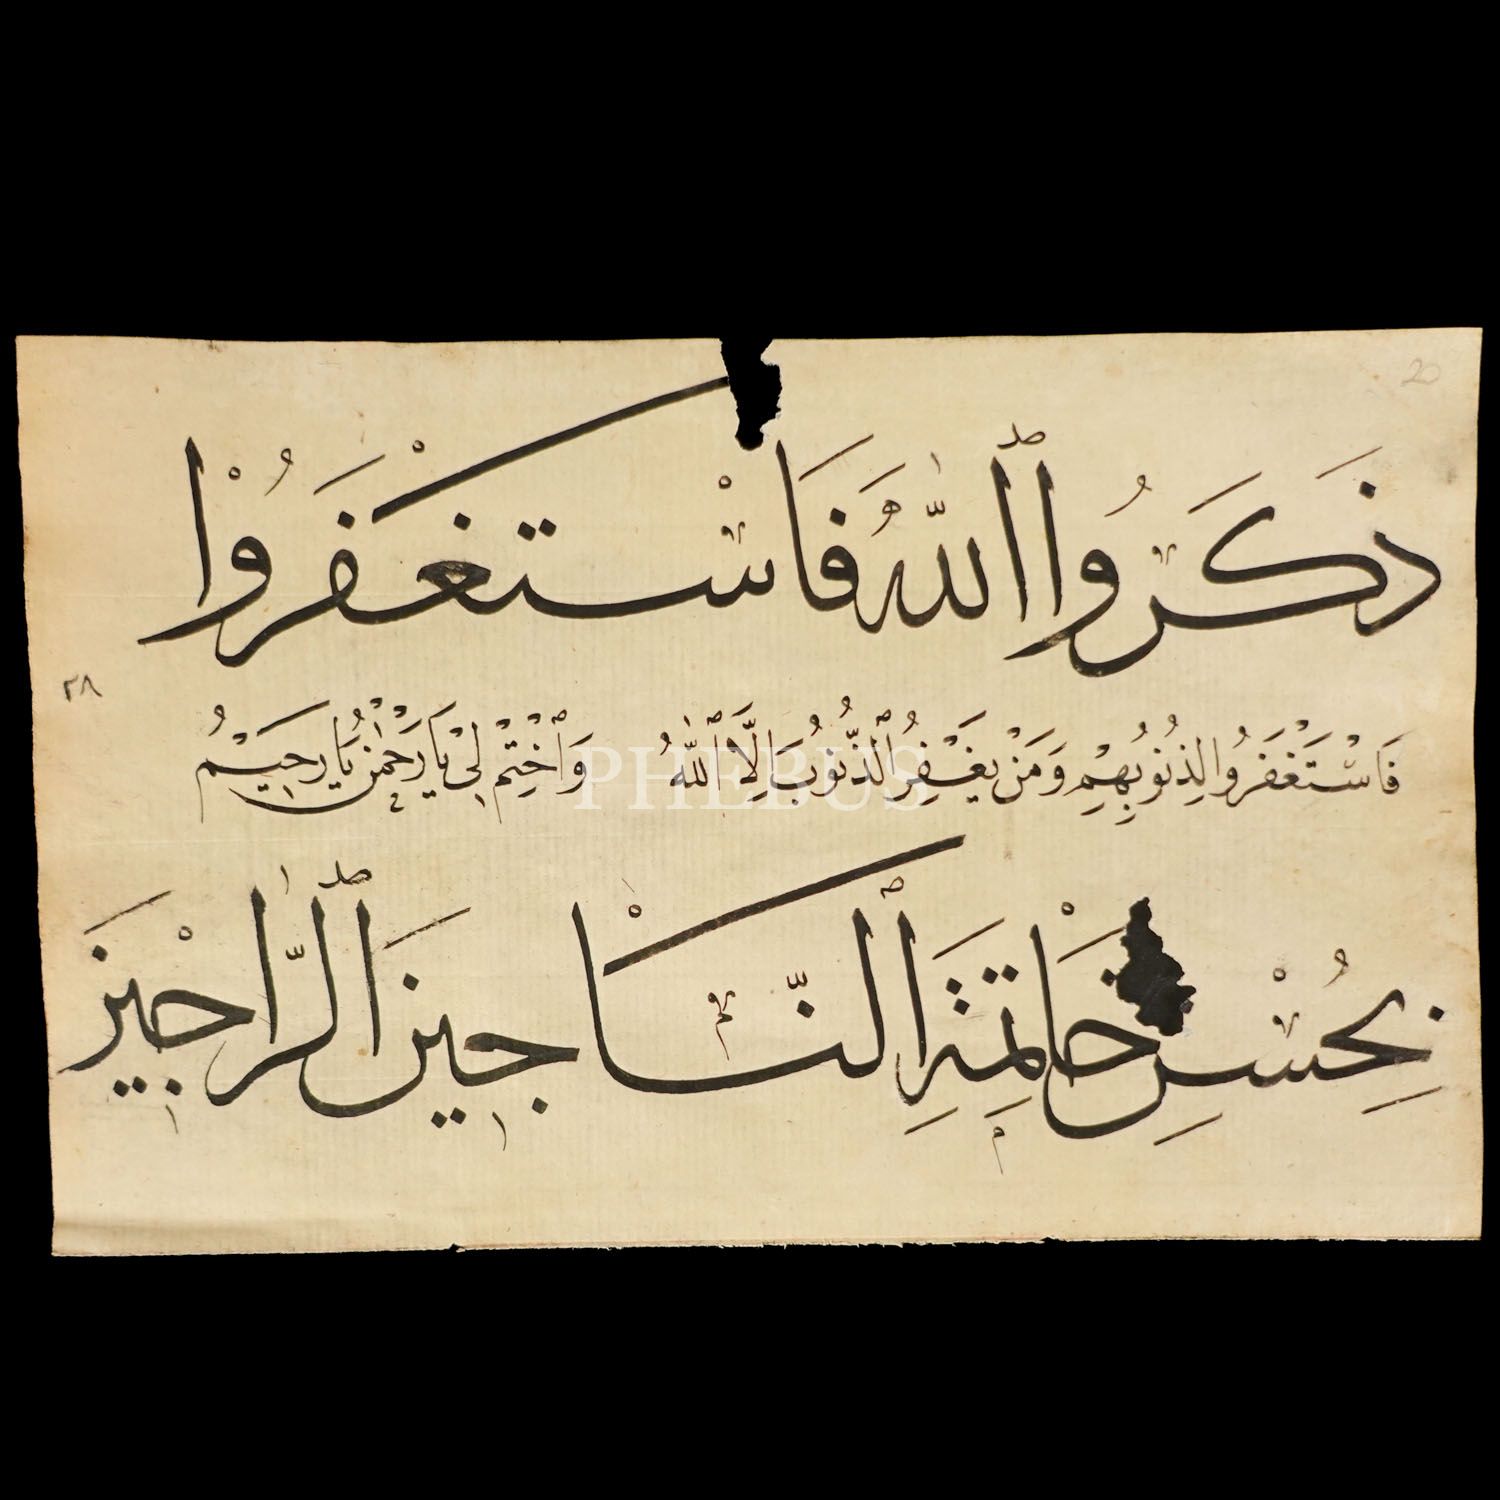 20
ذَكَرُوا ٱللَّهَ فَاسْتَغْفَرُوْا
٢٨
فَاسْتَغْفَرُوا لِذُنُوبِهِمْ وَمَنْ يَغْفِرُ ٱلذُّنُوبَ اِلَّا ٱللّٰهُ وَٱخْتِمْ لِى يَا رَحْمٰنُ يَا رَحِيْمُ
PHEBUS
بِحُسْنِ خَاتِمَةِ ٱلنَّاجِينَ ٱلرَّاجِينَ